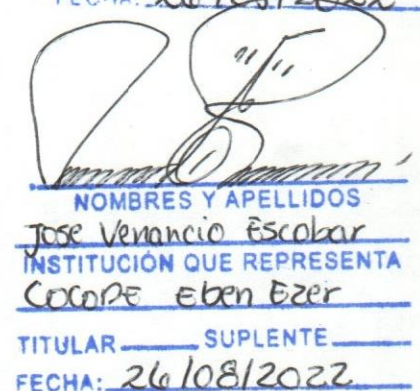 FECHA: 26/08/2022
NOMBRES Y APELLIDOS
Jose Venancio Escobar
INSTITUCIÓN QUE REPRESENTA
COCODE Eben Ezer
TITULAR SUPLENTE
FECHA: 26/08/2022